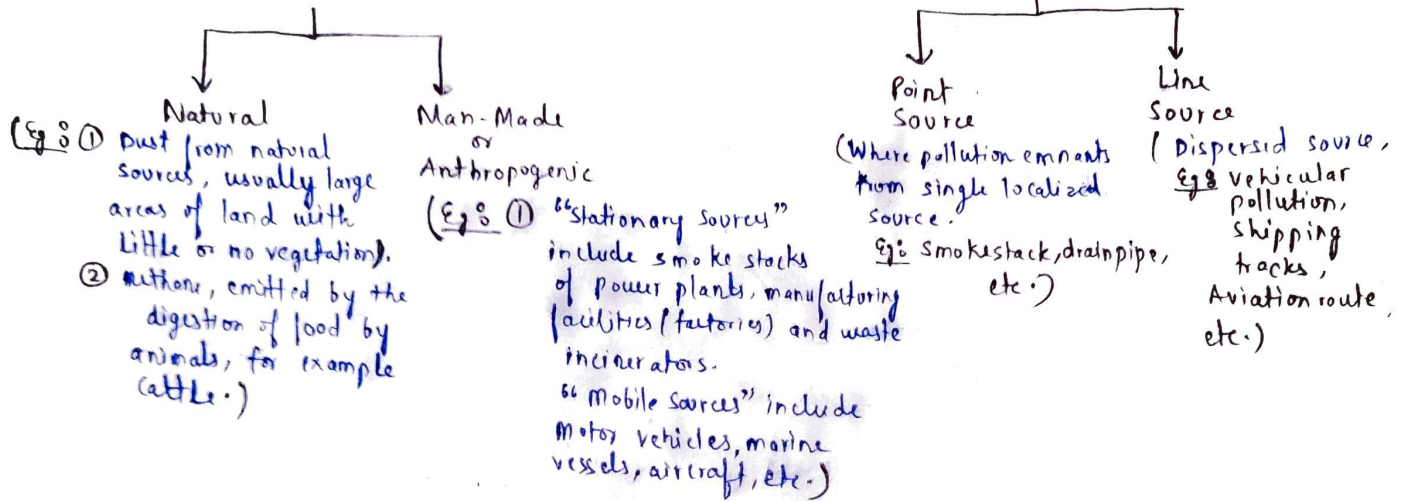 Natural
(Eg: ① Dust from natural
sources, usually large
areas of land with
little or no vegetation).
② methane, emitted by the
digestion of food by
animals, for example
cattle.)
Man-Made
or
Anthropogenic
(Eg: ① "Stationary sources"
include smoke stacks
of power plants, manufacturing
facilities (factories) and waste
incinerators.
"Mobile Sources" include
motor vehicles, marine
vessels, aircraft, etc.)
Point
Source
(Where pollution emnants
from single localized
source.
Eg: smokestack, drainpipe,
etc.)
Line
Source
( Dispersed source,
Eg: vehicular
pollution,
shipping
tracks,
Aviation route,
etc.)